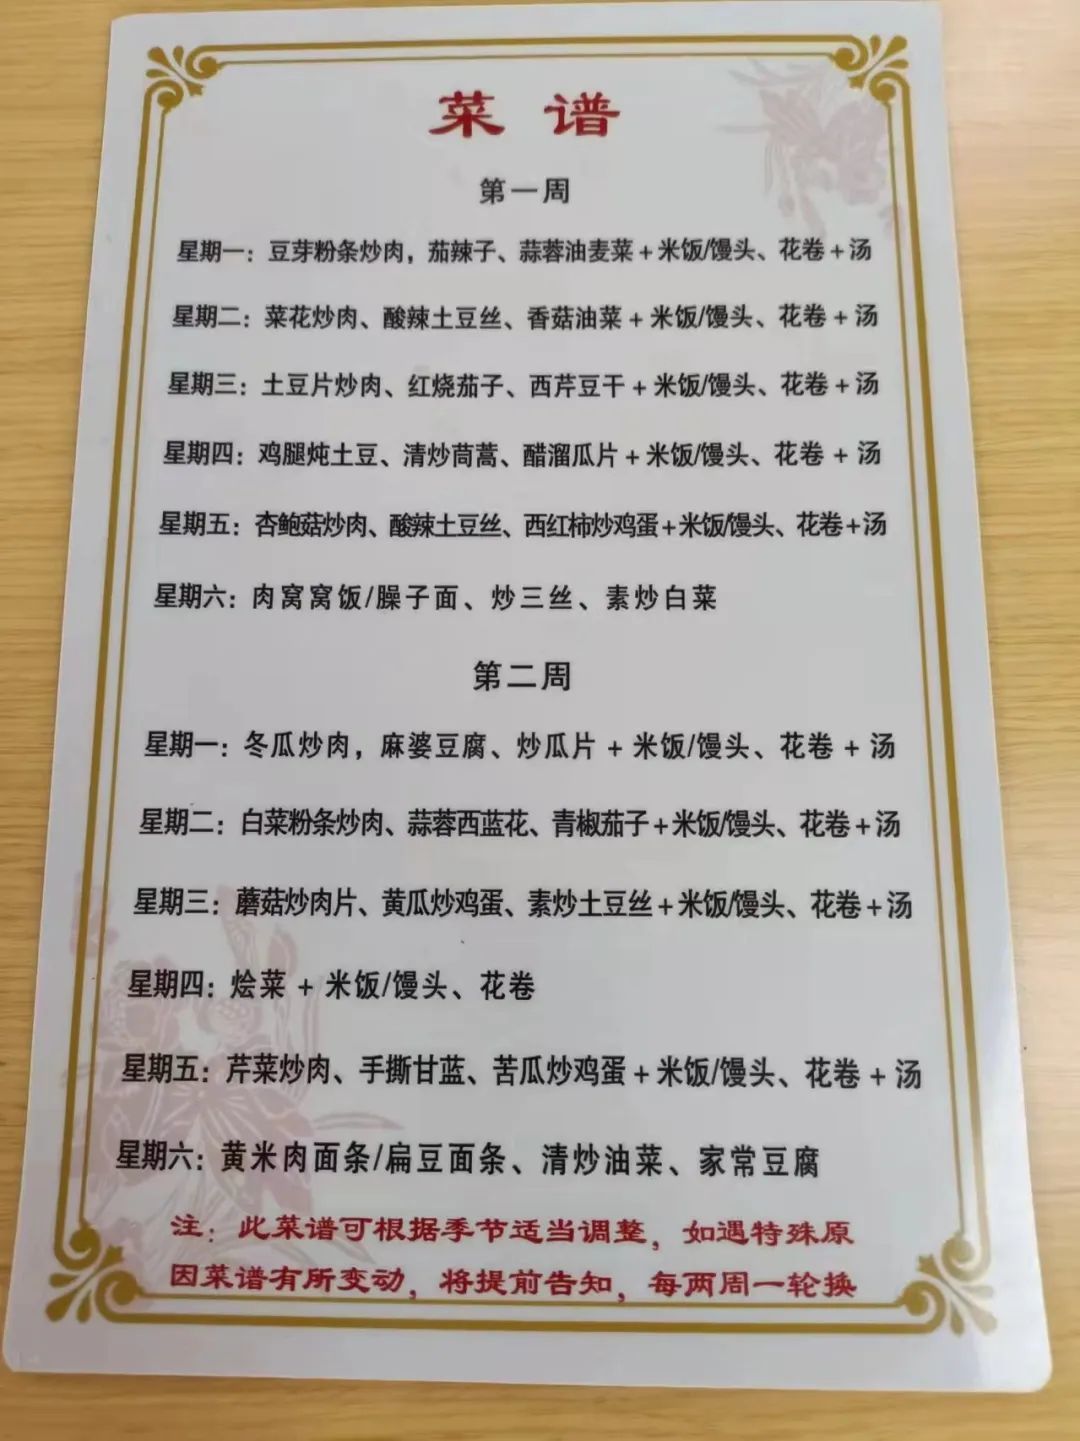 菜谱
第一周
星期一：豆芽粉条炒肉，茄辣子、蒜蓉油麦菜+米饭/馒头、花卷+汤
星期二：菜花炒肉、酸辣土豆丝、香菇油菜+米饭/馒头、花卷+汤
星期三：土豆片炒肉、红烧茄子、西芹豆干+米饭/馒头、花卷+汤
星期四：鸡腿炖土豆、清炒茼蒿、醋溜瓜片+米饭/馒头、花卷+汤
星期五：杏鲍菇炒肉、酸辣土豆丝、西红柿炒鸡蛋+米饭/馒头、花卷+汤
星期六：肉窝窝饭/臊子面、炒三丝、素炒白菜
第二周
星期一：冬瓜炒肉，麻婆豆腐、炒瓜片+米饭/馒头、花卷+汤
星期二：白菜粉条炒肉、蒜蓉西蓝花、青椒茄子+米饭/馒头、花卷+汤
星期三：蘑菇炒肉片、黄瓜炒鸡蛋、素炒土豆丝+米饭/馒头、花卷+汤
星期四：烩菜+米饭/馒头、花卷
星期五：芹菜炒肉、手撕甘蓝、苦瓜炒鸡蛋+米饭/馒头、花卷+汤
星期六：黄米肉面条/扁豆面条、清炒油菜、家常豆腐
注：此菜谱可根据季节适当调整，如遇特殊原
因菜谱有所变动，将提前告知，每两周一轮换